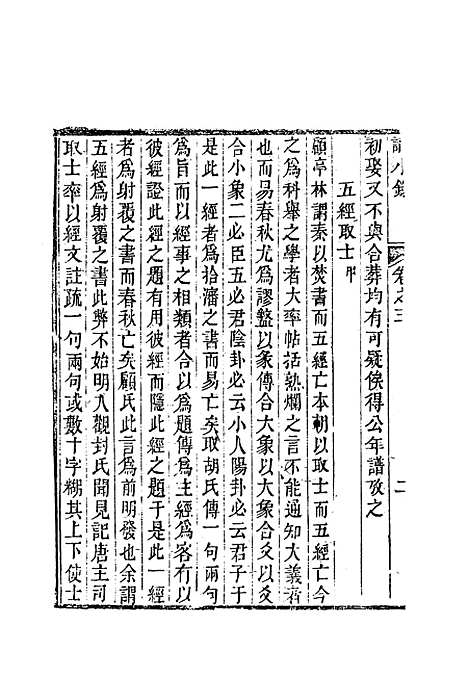 卷之三
二
初娶又不與合葬均有可疑俟得公年譜攷之
五經取士
顧亭林謂秦以焚書而五經亡本朝以取士而五經亡今
之為科舉之學者大率帖括熟爛之言不能通知大義者
也而易春秋尤為謬盭以彖傳合大象以大象合爻以爻
合小象二必臣五必君陰卦必云小人陽卦必云君子于
是此一經者為拾瀋之書而易亡矣取胡氏傳一句兩句
為旨以經事之相類者合以為題傳為主經為客有以
彼經證此經之題有用彼經而隱此經之題于是此一經
者為射覆之書而春秋亡矣顧氏此言為前明發也余謂
五經為射覆之書此弊不始明人觀封氏聞見記唐主司
取士率以經文註疏一句兩句或數十字糊其上下使士